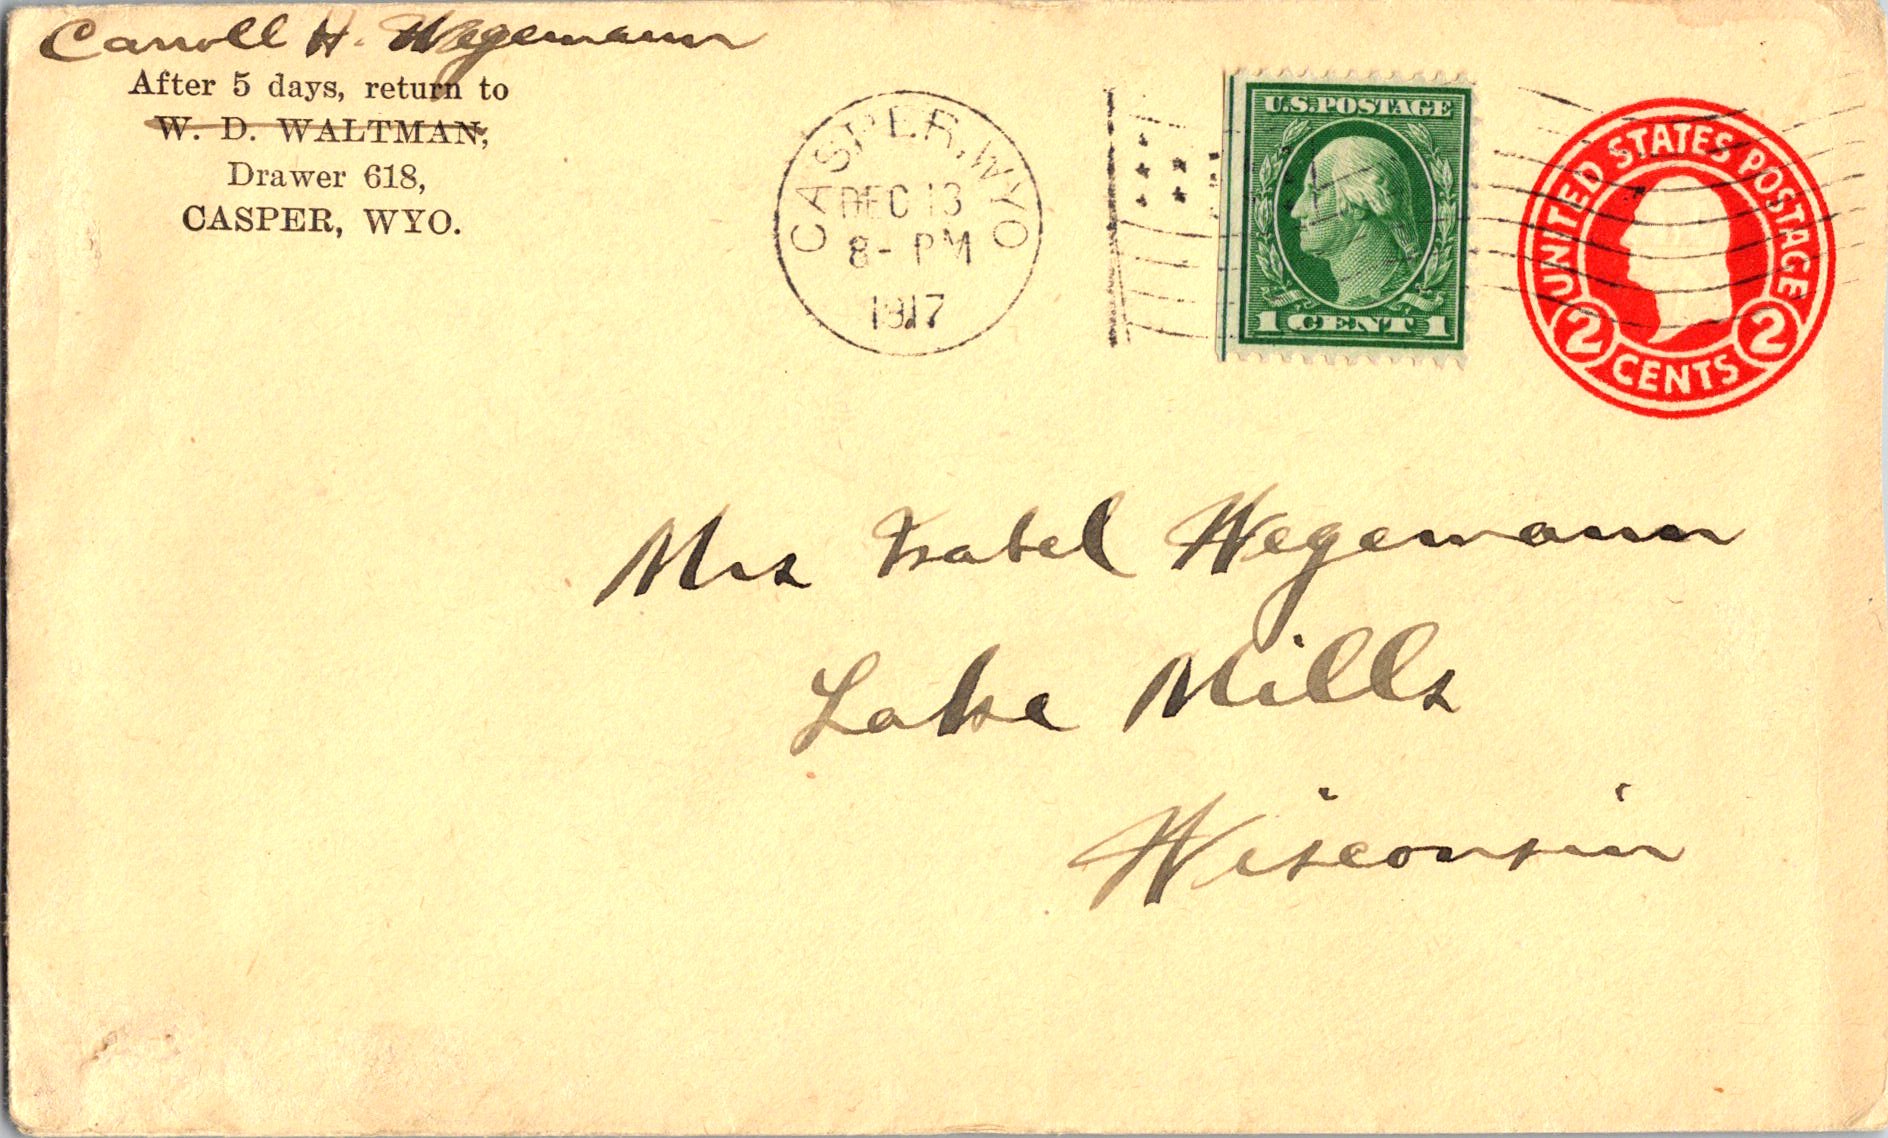 Carroll H. Wegemann
After 5 days, return to
W. D. WALTMAN,
Drawer 618,
CASPER, WYO.
CASPER, WYO
DEC 13
8- PM
1917
U.S. POSTAGE
1 CENT 1
UNITED STATES POSTAGE
2 CENTS 2
Mrs Isabel Wegemann
Lake Mills
Wisconsin